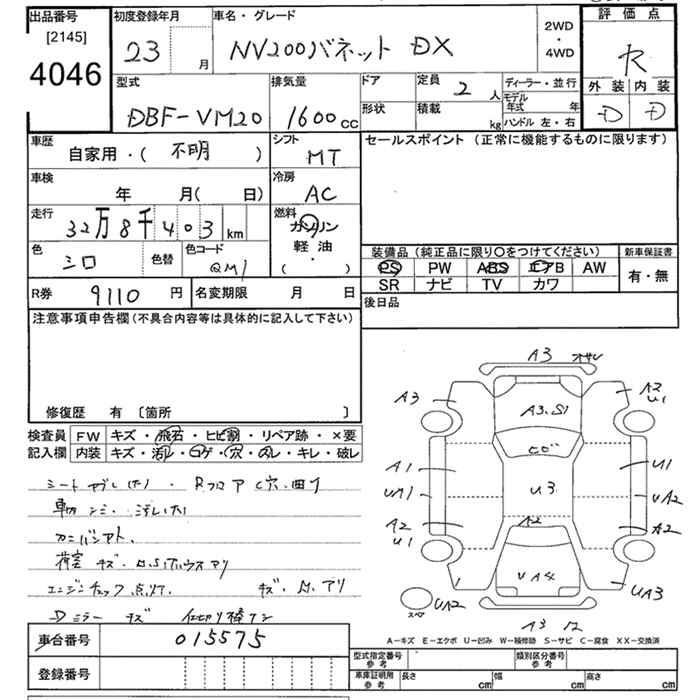 出品番号
[2145]
4046
初度登録年月
23 月
車名・グレード
NV200バネット DX
2WD
・
4WD
評価点
R
外装 内装
D D
型式
DBF-VM20
排気量
1600cc
ドア
形状
定員 2 人
積載 kg
ディーラー・並行
モデル年式 年
ハンドル 左・右
車歴
自家用・( 不明 )
シフト
MT
セールスポイント (正常に機能するものに限ります)
車検
年 月( 日)
冷房
AC
走行
32万8千403km
燃料
ガソリン
軽油
( ・ )
色
シロ
色替
色コード
QM1
装備品(純正品に限り○をつけてください)
PS PW ABS エアB AW
SR ナビ TV カワ
新車保証書
有・無
R券 9110 円
名変期限 月 日
後日品
注意事項申告欄(不具合内容等は具体的に記入して下さい)
修復歴 有 〔箇所 〕
検査員記入欄
FW キズ・飛石・ヒビ割・リペア跡・×要
内装 キズ・汚レ・コゲ・穴・スレ・キレ・破レ
Rフロア C穴 曲り
荷室 キズ
エンジンチェック点灯
キズ
Dミラー キズ
車台番号 015575
登録番号
A3
A3
A3.S1
A2
U1
A1
UA1
A2
U1
U3
A2
U1
UA2
A2
UA4
UA3
スペア
UA2
A3
A－キズ E－エクボ U－凹み W－補修跡 S－サビ C－腐食 XX－交換済
型式指定番号
参考
類別区分番号
参考
車庫証明用
参考
長さ cm
幅 cm
高さ cm